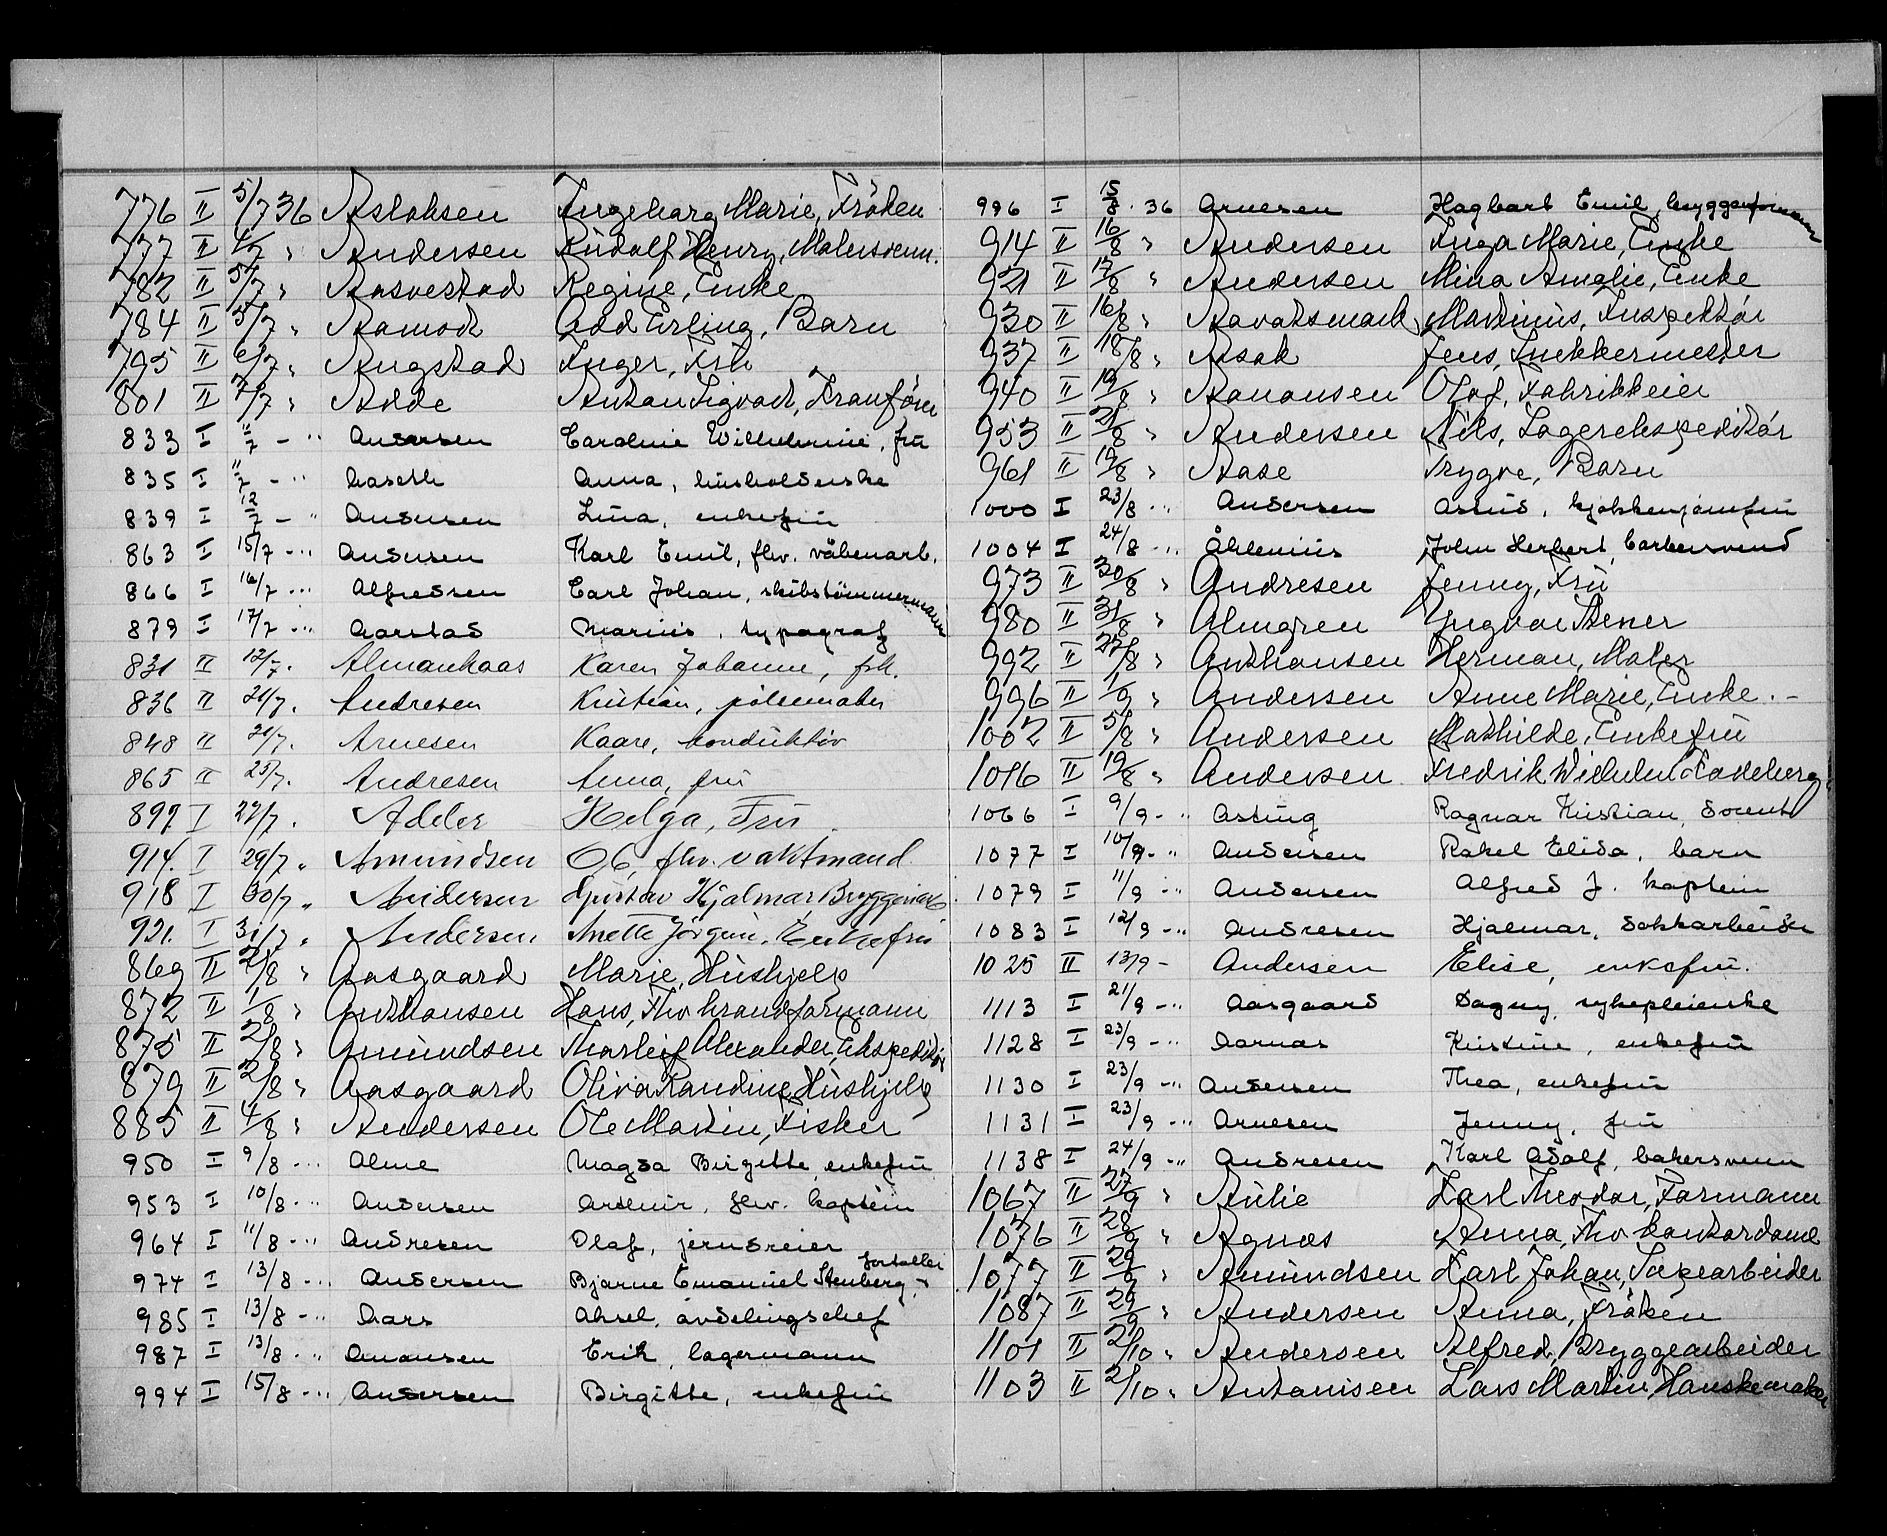 776 II 5/7 36 Aslaksen Ingeborg Marie, Fröken
777 II 4/7 " Andersen Rudolf Henry, Malersvenn.
782 II 5/7 " Aasvestad Regine, Enke
784 II 3/7 " Aamodt Odd Erling, Barn
795 II 6/7 " Angstad Inger, Fru
801 II 7/7 " Anton Sigvart,
833 I 11/7 - " Andersen Caroline Wilhelmine, fru
835 I 11/7 - " Aaseth Anna, husholderske
839 I 12/7 - " Andersen Lina, enkefru
863 I 15/7 - " Andersen Karl Emil, fhv. våbenarb.
866 I 16/7 - " Alfredsen Carl Johan, skibstömmermann
879 I 17/7 - " Aarstad Marius, typograf
831 II 12/7. Almankaas Karen Johanne, frk.
836 II 21/7. Andresen Kristian, pölsemaker
848 II 21/7. Arnesen Kaare, konduktör
865 II 25/7. Andresen Anna, fru
897. I 27/7. Adeler Helga, Fru.
914. I 29/7. " Amundsen O6, fhv. vaktmand
918 I 30/7. " Andersen Gustav Hjalmar
921. I 31/7. " Andersen Anette Jörgine, Enkefru
869 II 2/8 " Aasgaard Marie, Hushjelp
872 II 1/8 " Anthonsen Hans, Fhv brandformann
875 II 2/8 " Amundsen Thorleif Alexander, Ekspeditör
879 II 2/8 " Aasgaard Oliva Randine, Hushjelp
885 II 4/8 " Andersen Ole Martin, Fisker
950 I 9/8 - " Alme Magda Birgitte, enkefru
953 I 10/8 - " Andersen Arthur, fhv. kaptein
964 I 11/8 - " Andresen Olaf, jerndreier
974 I 13/8 - " Andersen Bjarne Emanuel Stenberg,
985 I 13/8 - " Aars Aksel, avdelingschef
987 I 13/8 - " Amansen Erik, lagermann
994 I 15/8 - " Andersen Birgitte, enkefru
996 I 15/8. 36 Arnesen Hagbart Emil, bryggeformann
914 II 16/8 " Andersen Inga Marie, Enke
921 II 17/8 " Andersen Mina Amalie, Enke
930 II 16/8 " Aavatsmark Martinius, Inspektör
937 II 18/8 " Asak Jens, Snekkermester
940 II 19/8 " Aanonsen Olaf, Fabrikkeier
953 II 21/8 " Andersen Nils, Lagerekspeditör
961 II 19/8 " Aase Trygve, Barn
1000 I 23/8 - " Andersen Astrid, kjökkenjomfru
1004 I 24/8 - " Åhlenius John Herbert, barbersvend
973 II 30/8 " Andresen Jenny, Fru
980 II 31/8 " Almgren Yngvar Stener
992 II 27/8 " Anthonsen Herman, Maler
996 II 1/9 " Andersen Anne Marie, Enke. -
1002 II 5/8 " Andersen Mathilde, Enkefru
1016 II 19/8 " Andersen Fredrik Wilhelm
1066 I 9/9 - " Asting Ragnar Kristian, docent
1077 I 10/9 - " Andersen Rakel Elida, barn
1079 I 11/9 - " Andersen Alfred J. kaptein
1083 I 12/9 - " Andresen Hjalmar, dokkarbeider
1025 II 13/9 - Andersen Elise, enkefru.
1113 I 21/9 - " Aasgaard Dagny, sykepleierske
1128 I 23/9 - " Aarnas Kristine, enkefru
1130 I 23/9 - " Andersen Thea, enkefru
1131 I 23/9 - " Arnesen Jenny, fru
1138 I 24/9 - " Andresen Karl Adolf, bakersvenn
1067 II 27/9 " Aulie Karl Theodor, Formann
1076 II 28/9 " Agnæs Anna, Fhv kontordame
1077 II 29/9 " Amundsen Karl Johan, Sepearbeider
1087 II 29/9 " Andersen Anna, Fröken
1101 II 2/10 " Andersen Alfred, Bryggearbeider
1103 II 2/10 " Antonisen Lars Martin, Hanskemaker